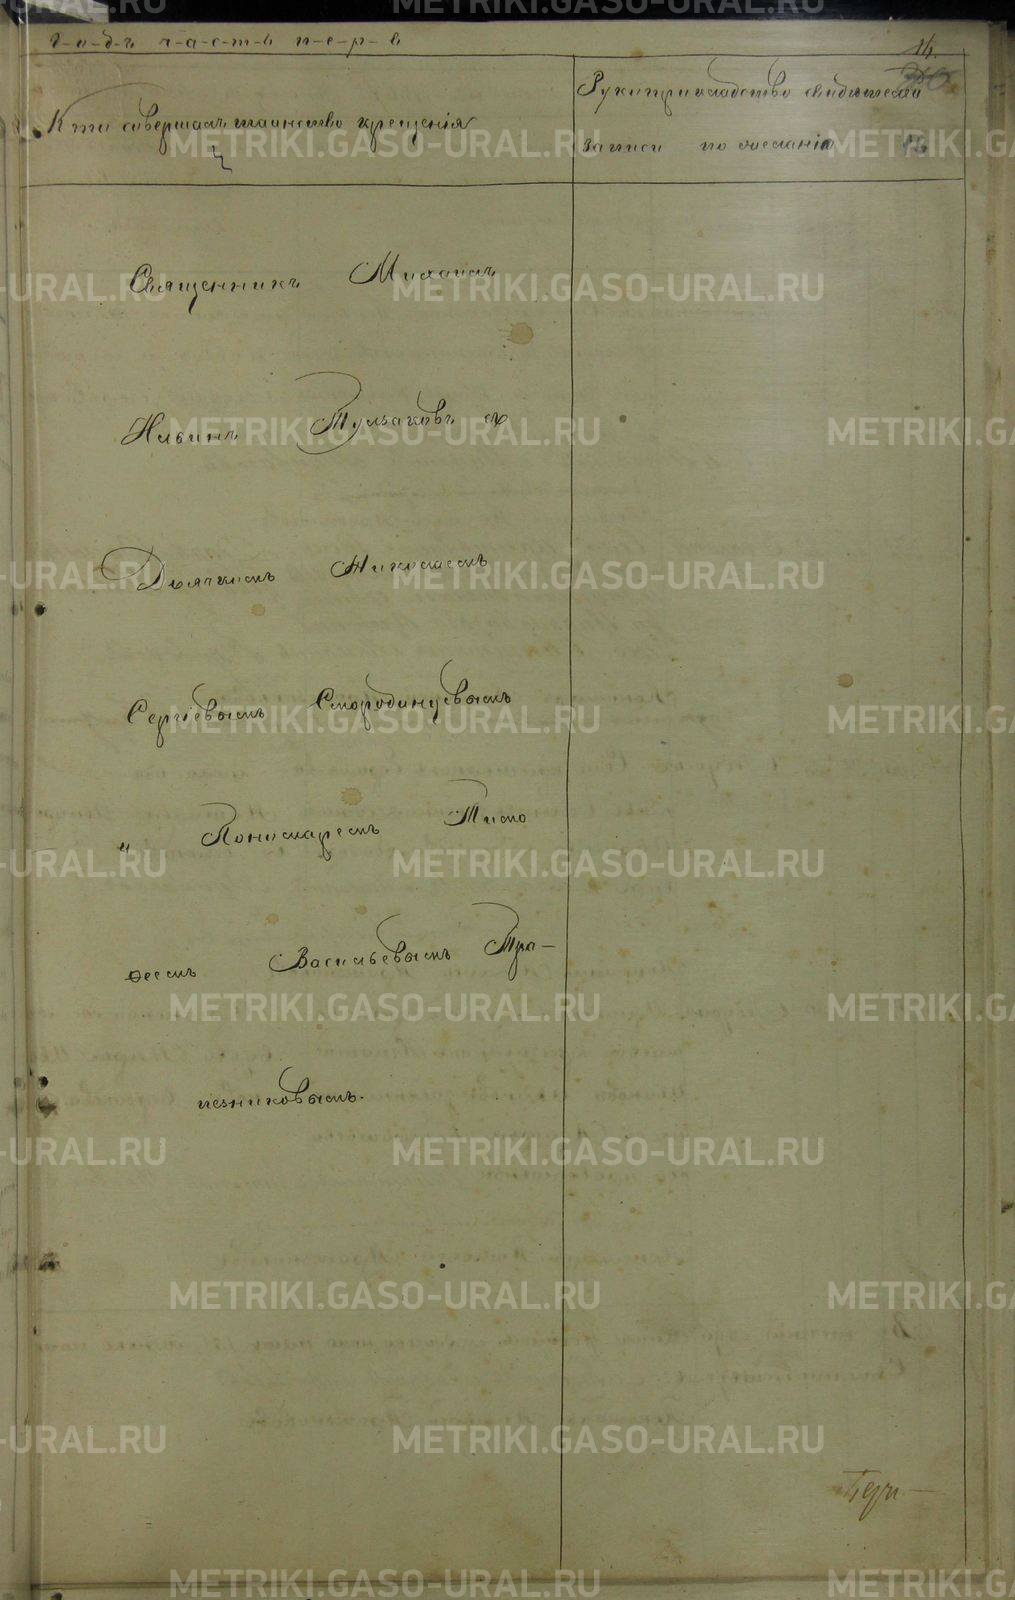 г-о-д-ъ ч-а-с-т-ь п-е-р-в
14.
Кто совершалъ таинство крещенія
Рукоприкладство свидѣтелей
записи по желанію
16
Священникъ Михаилъ
Ильинъ съ
Дьячкомъ Николаемъ
Сергіевымъ Смородинцевымъ
и Пономаремъ Тимо
ѳеемъ Васильевымъ Тра-
пезниковымъ.
METRIKI.GASO-URAL.RU